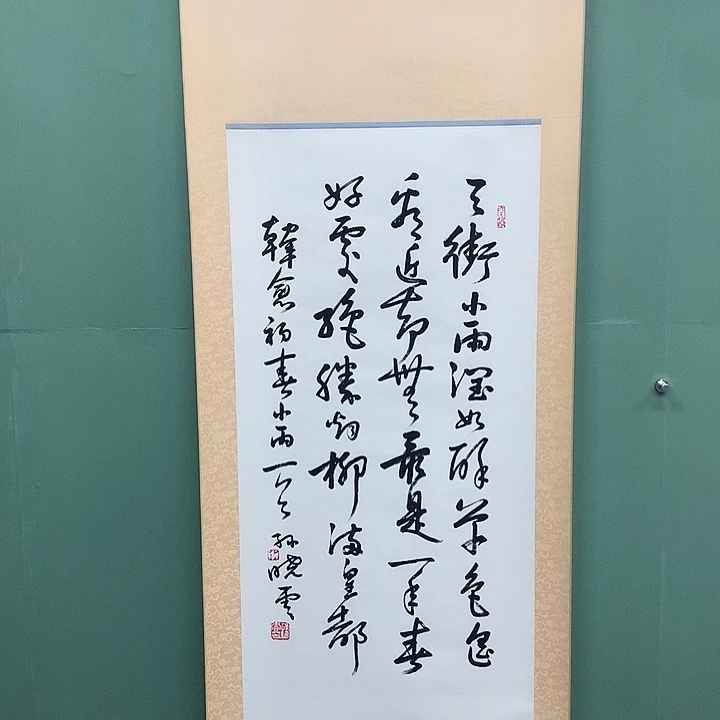 天街小雨潤如酥草色遥
看近却無最是一年春
好處絶勝烟柳滿皇都
韓愈初春小雨一首 孫曉雲